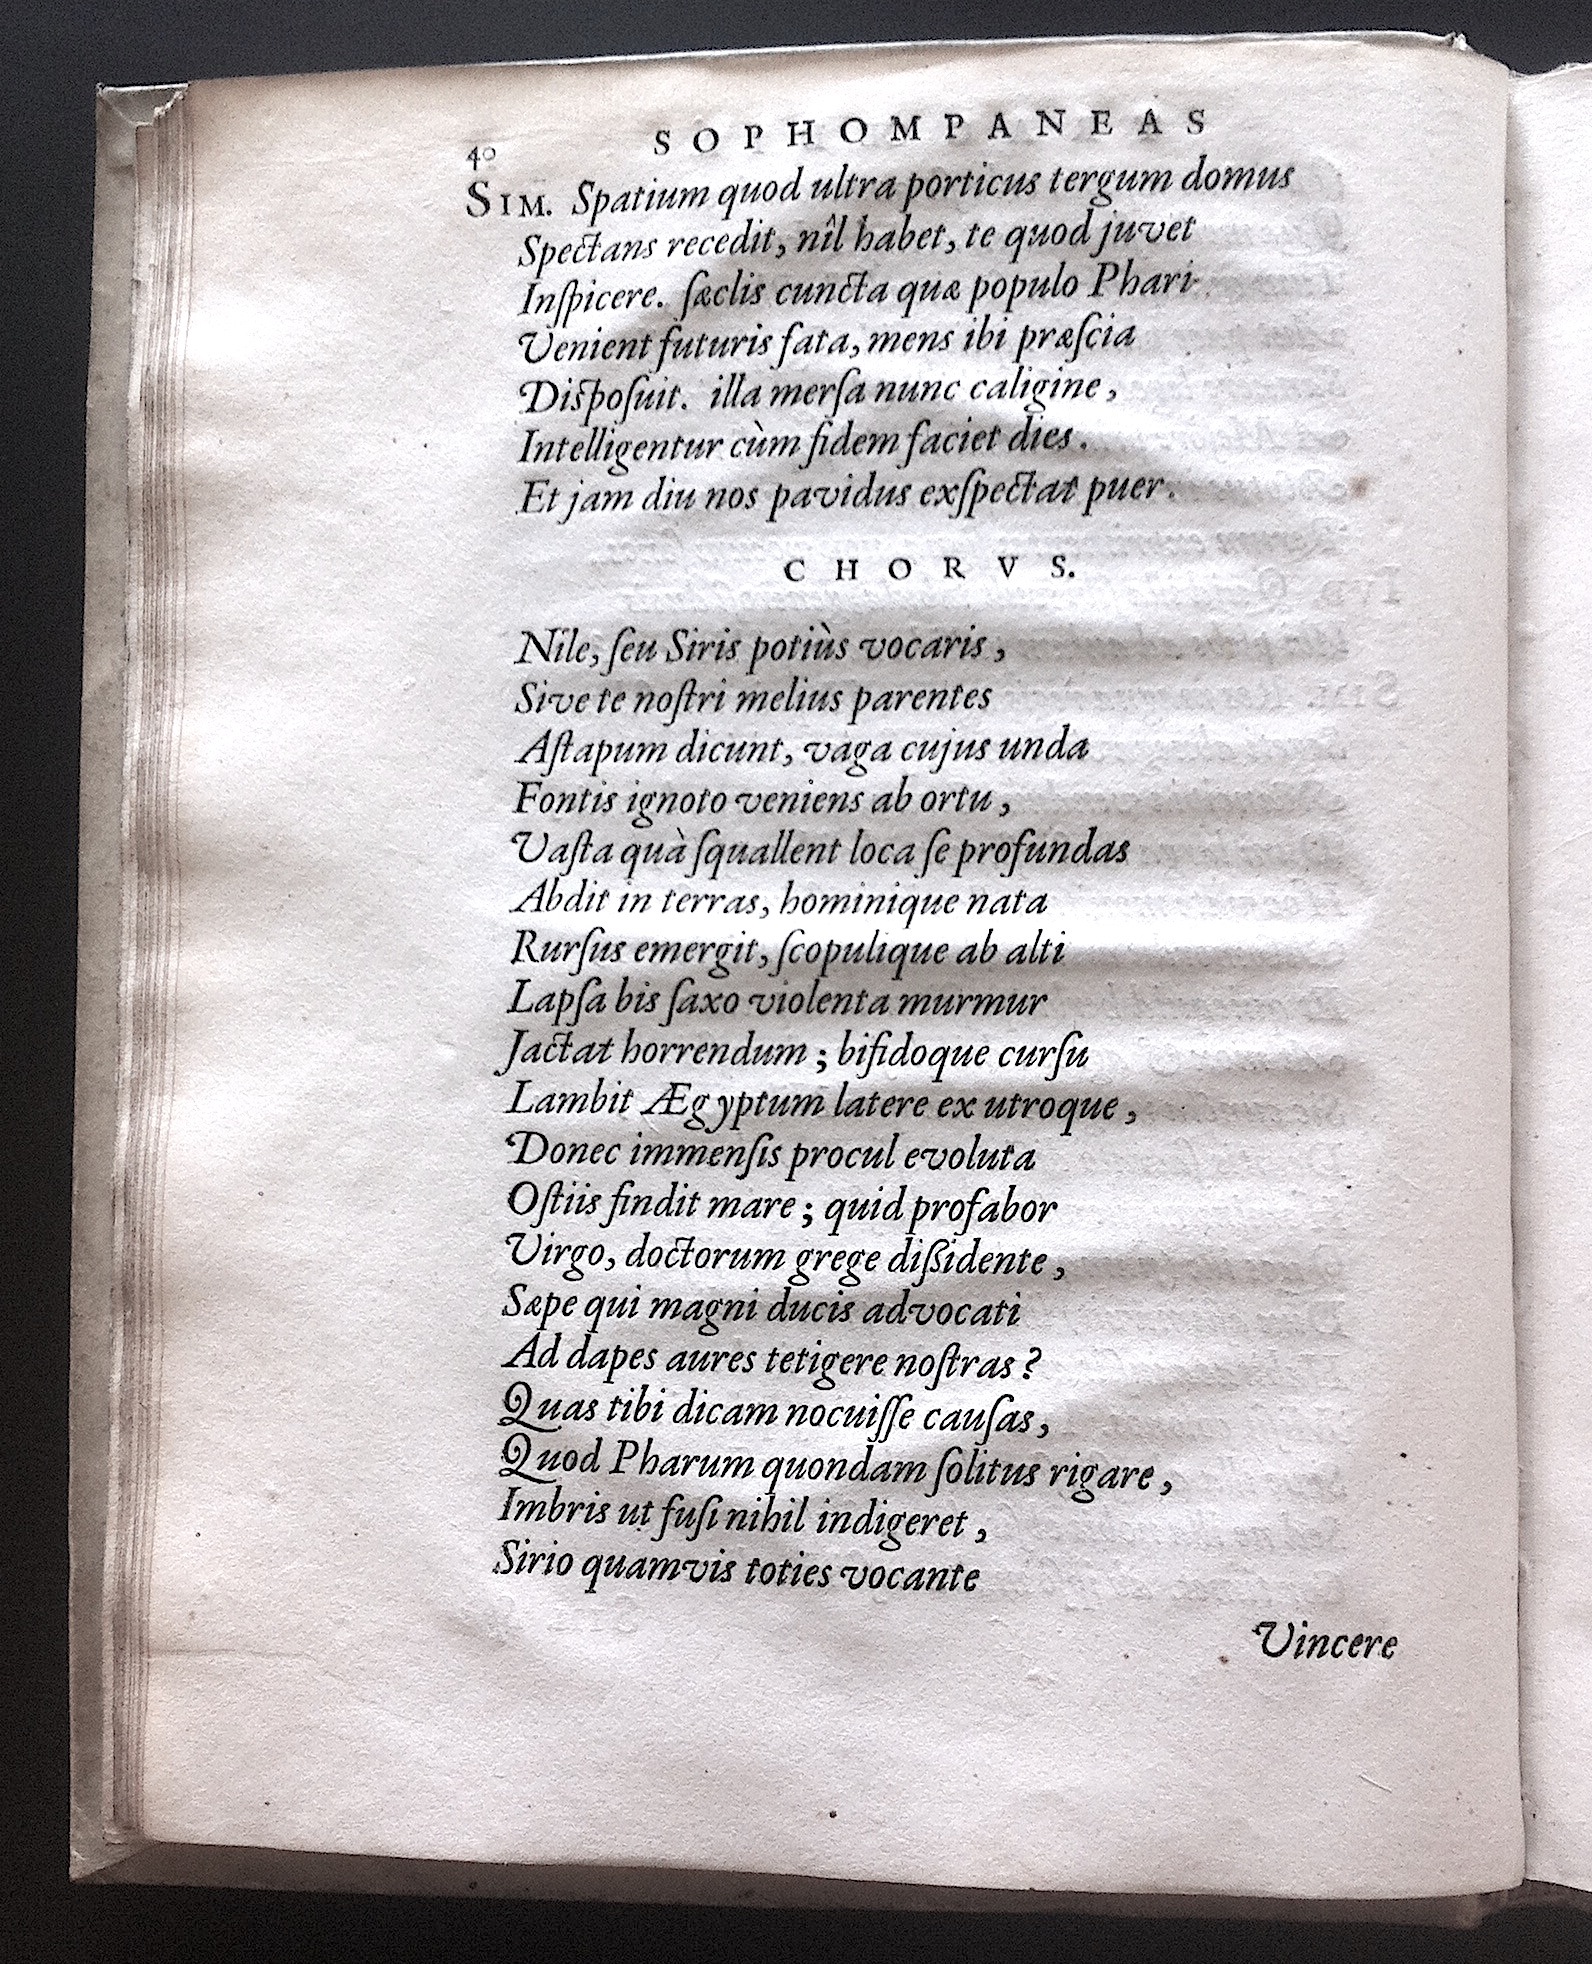 40 SOPHOMPANEAS
SIM. Spatium quod ultra porticus tergum domus
Spectans recedit, nîl habet, te quod juvet
Inſpicere. ſæclis cuncta quæ populo Phari
Venient futuris fata, mens ibi præſcia
Diſpoſuit. illa merſa nunc caligine,
Intelligentur cùm fidem faciet dies.
Et jam diu nos pavidus exſpectat puer.
CHORVS.
Nile, ſeu Siris potiùs vocaris,
Sive te noſtri melius parentes
Aſtapum dicunt, vaga cujus unda
Fontis ignoto veniens ab ortu,
Vaſta quà ſquallent loca ſe profundas
Abdit in terras, hominique nata
Rurſus emergit, ſcopulique ab alti
Lapſa bis ſaxo violenta murmur
Jactat horrendum; bifidoque curſu
Lambit Ægyptum latere ex utroque,
Donec immenſis procul evoluta
Oſtiis findit mare; quid profabor
Virgo, doctorum grege diſſidente,
Sæpe qui magni ducis advocati
Ad dapes aures tetigere noſtras?
Quas tibi dicam nocuiſſe cauſas,
Quod Pharum quondam ſolitus rigare,
Imbris ut fuſi nihil indigeret,
Sirio quamvis toties vocante
Vincere